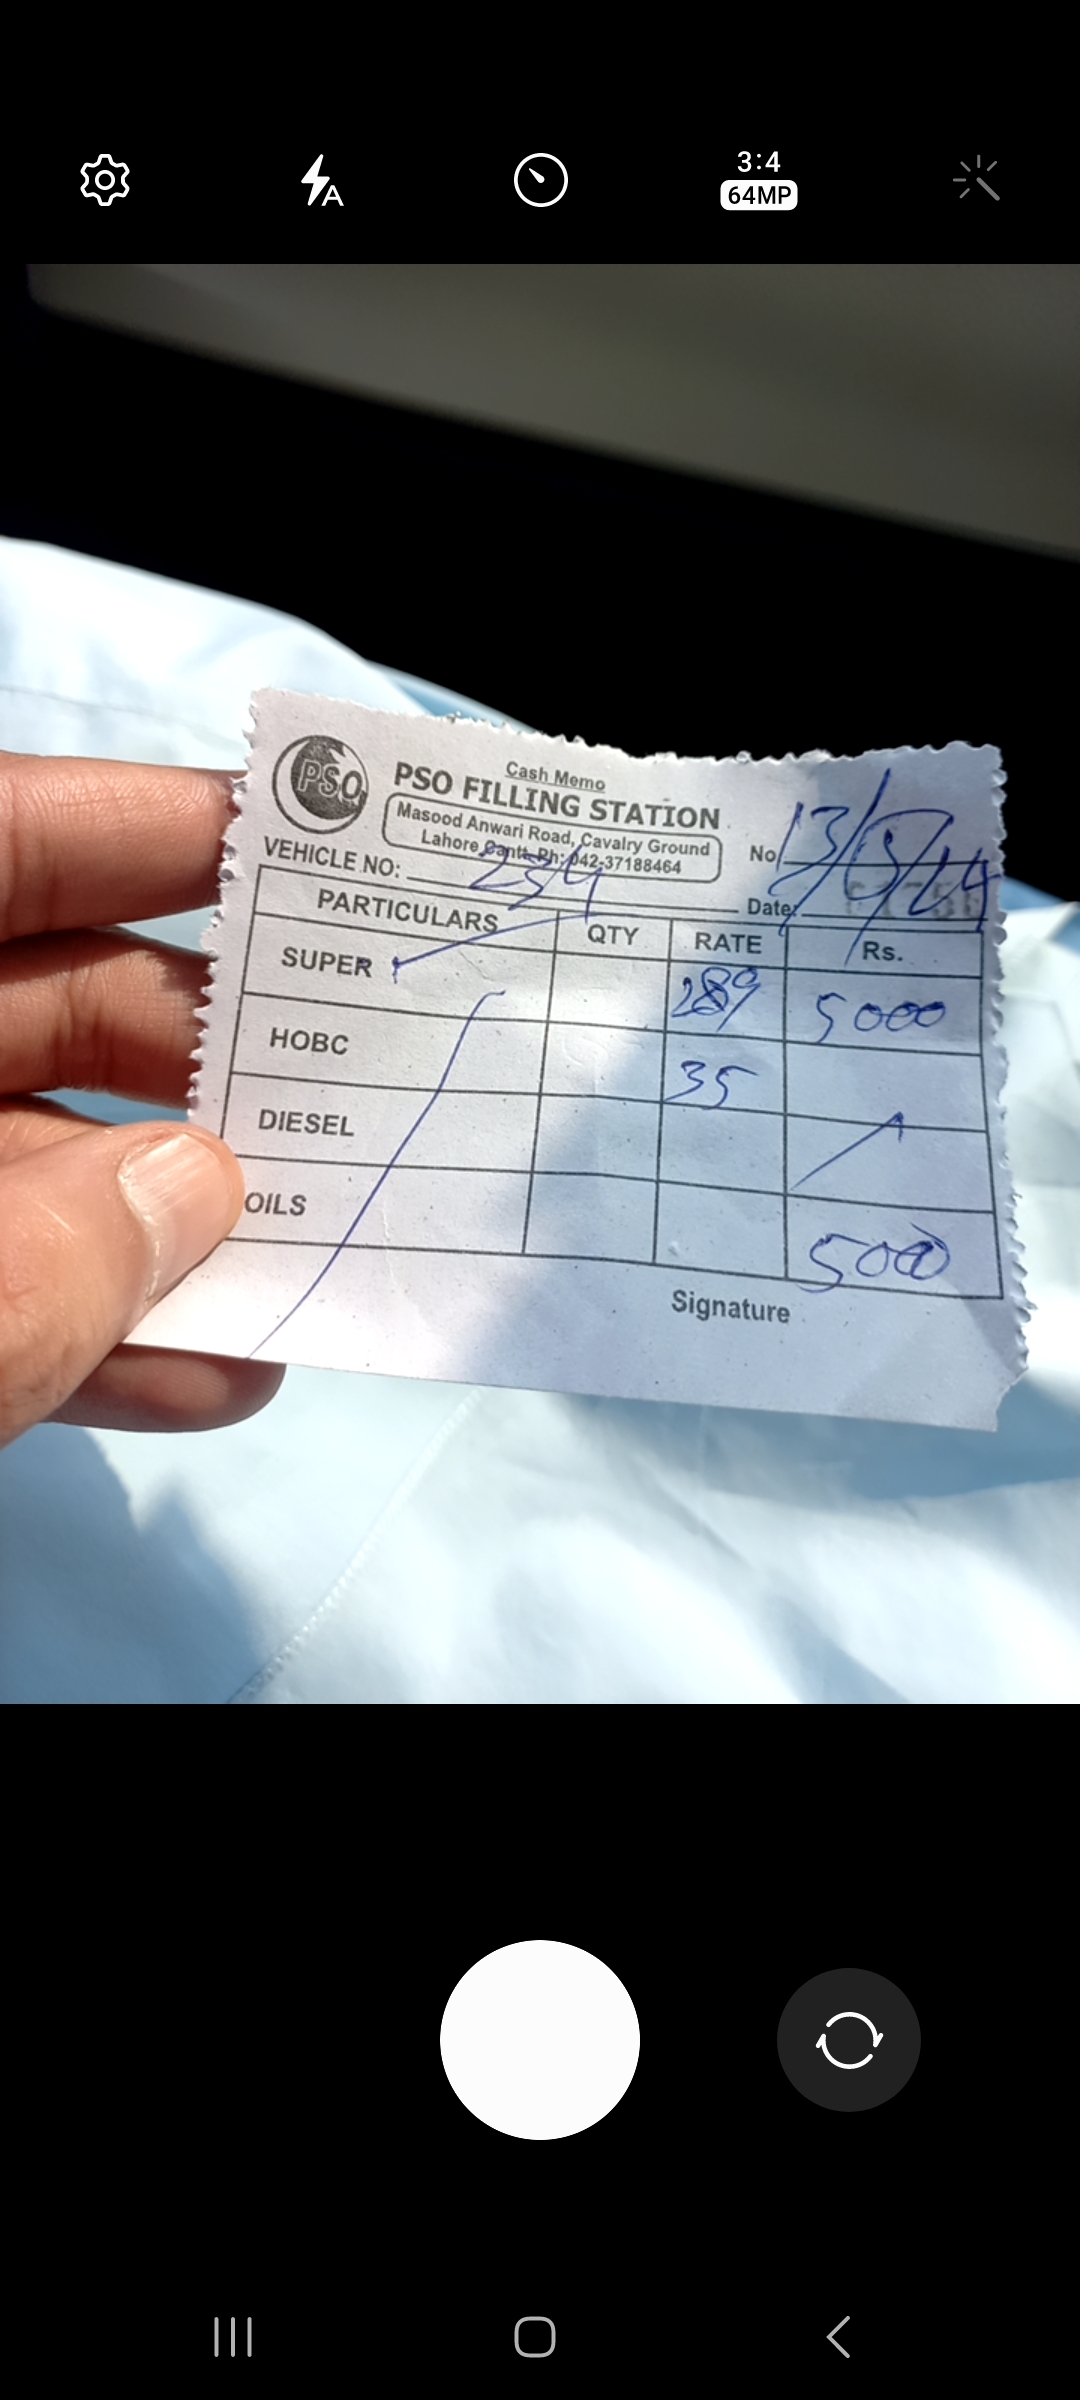 3:4
64MP
Cash Memo
PSO
PSO FILLING STATION
Masood Anwari Road, Cavalry Ground
Lahore Cantt. Ph: 042-37188464
No. 13/5/24
VEHICLE NO: 234
Date:
PARTICULARS QTY RATE Rs.
SUPER 289 5000
HOBC 35
DIESEL
OILS 5000
Signature